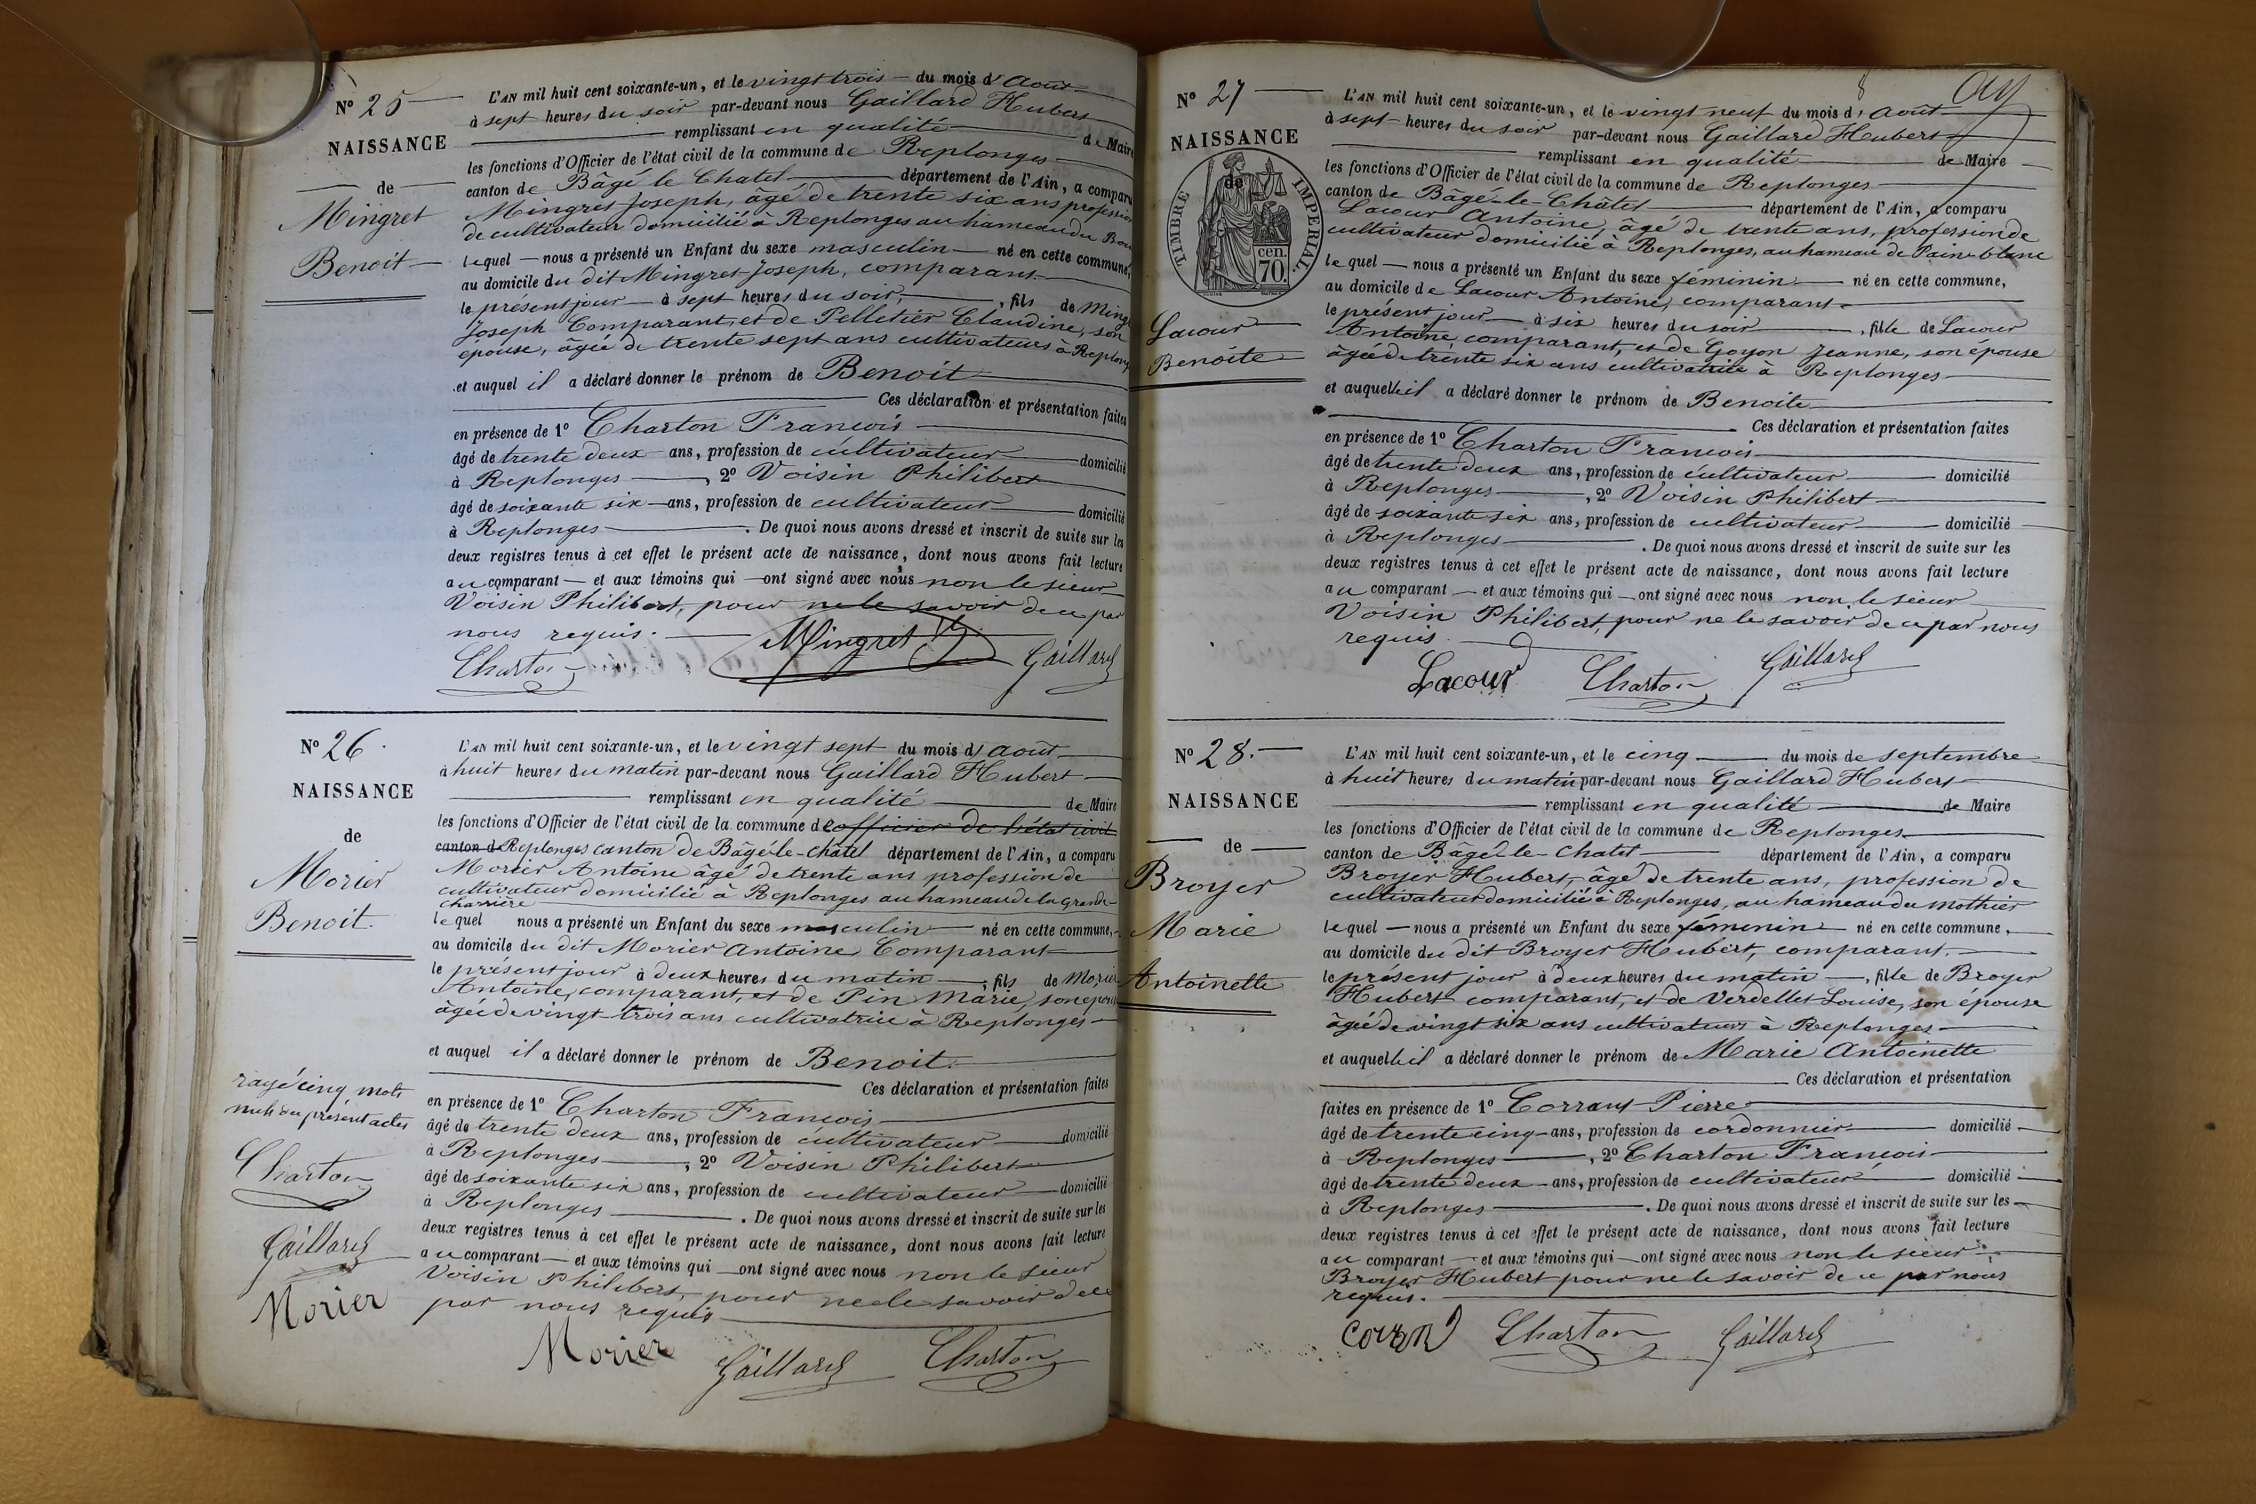 N° 25
NAISSANCE
de
Mingret
Benoit
L'AN mil huit cent soixante-un, et le vingt trois du mois d'Août
à sept heures du soir par-devant nous Gaillard Hubert
remplissant en qualité de Maire
les fonctions d'Officier de l'état civil de la commune de Replonges
canton de Bâgé le Chatel département de l'Ain, a comparu
Mingret Joseph, âgé de trente six ans profession
de cultivateur domicilié à Replonges au hameau du
lequel nous a présenté un Enfant du sexe masculin né en cette commune,
au domicile du dit Mingret Joseph, comparant
le présent jour à sept heures du soir, fils de
Joseph Comparant, et de Pelletier Claudine, son
épouse, âgée de trente sept ans cultivateurs à
et auquel il a déclaré donner le prénom de Benoit
Ces déclaration et présentation faites
en présence de 1° Charton François
âgé de trente deux ans, profession de cultivateur domicilié
à Replonges, 2° Voisin Philibert
âgé de soixante six ans, profession de cultivateur domicilié
à Replonges. De quoi nous avons dressé et inscrit de suite sur les
deux registres tenus à cet effet le présent acte de naissance, dont nous avons fait lecture
au comparant et aux témoins qui ont signé avec nous non le sieur
Voisin Philibert, pour ne le savoir de ce par
nous requis.
Charton Mingret Gaillard
N° 26.
NAISSANCE
de
Morier
Benoit.
L'AN mil huit cent soixante-un, et le vingt sept du mois d'août
à huit heures du matin par-devant nous Gaillard Hubert
remplissant en qualité de Maire
les fonctions d'Officier de l'état civil de la commune de officier de l'état civil
canton de Replonges canton de Bâgé-le-Châtel département de l'Ain, a comparu
Morier Antoine âgé de trente ans profession de
cultivateur domicilié à Replonges au hameau de la grande
charrière
lequel nous a présenté un Enfant du sexe masculin né en cette commune,
au domicile du dit Morier Antoine Comparant
le présent jour à deux heures du matin, fils de Morier
Antoine, comparant, et de Pin Marie, son épouse
âgée de vingt-trois ans cultivatrice à Replonges
et auquel il a déclaré donner le prénom de Benoit.
Ces déclaration et présentation faites
en présence de 1° Charton François
âgé de trente deux ans, profession de cultivateur domicilié
à Replonges, 2° Voisin Philibert
âgé de soixante six ans, profession de cultivateur domicilié
à Replonges. De quoi nous avons dressé et inscrit de suite sur les
deux registres tenus à cet effet le présent acte de naissance, dont nous avons fait lecture
au comparant et aux témoins qui ont signé avec nous non le sieur
Voisin Philibert, pour ne le savoir de ce
par nous requis
Morier Gaillard Charton
rayé cinq mots
nuls au présent actes
Charton
Gaillard
Morier
8
N° 27
NAISSANCE
de
TIMBRE IMPERIAL.
70 cen.
Lacour
Benoite
L'AN mil huit cent soixante-un, et le vingt neuf du mois d'août
à sept heures du soir par-devant nous Gaillard Hubert
remplissant en qualité de Maire
les fonctions d'Officier de l'état civil de la commune de Replonges
canton de Bâgé-le-Châtel département de l'Ain, a comparu
Lacour Antoine, âgé de trente ans, profession de
cultivateur domicilié à Replonges, au hameau de Pain-blanc
lequel nous a présenté un Enfant du sexe féminin né en cette commune,
au domicile de Lacour Antoine, comparant
le présent jour à six heures du soir, fille de Lacour
Antoine, comparant, et de Goyon Jeanne, son épouse
âgée de trente six ans cultivatrice à Replonges
et auquelle il a déclaré donner le prénom de Benoite
Ces déclaration et présentation faites
en présence de 1° Charton François
âgé de trente deux ans, profession de cultivateur domicilié
à Replonges, 2° Voisin Philibert
âgé de soixante six ans, profession de cultivateur domicilié
à Replonges. De quoi nous avons dressé et inscrit de suite sur les
deux registres tenus à cet effet le présent acte de naissance, dont nous avons fait lecture
au comparant et aux témoins qui ont signé avec nous non le sieur
Voisin Philibert, pour ne le savoir de ce par nous
requis.
Lacour Charton Gaillard
N° 28.
NAISSANCE
de
Broyer
Marie
Antoinette
L'AN mil huit cent soixante-un, et le cinq du mois de septembre
à huit heures du matin par-devant nous Gaillard Hubert
remplissant en qualité de Maire
les fonctions d'Officier de l'état civil de la commune de Replonges
canton de Bâgé-le-Chatel département de l'Ain, a comparu
Broyer Hubert, âgé de trente ans, profession de
cultivateur domicilié à Replonges, au hameau du Mothier
lequel nous a présenté un Enfant du sexe féminin né en cette commune,
au domicile du dit Broyer Hubert, comparant.
le présent jour à deux heures du matin, fille de Broyer
Hubert comparant, et de Verdellet Louise, son épouse
âgée de vingt six ans cultivateurs à Replonges
et auquelle il a déclaré donner le prénom de Marie Antoinette
Ces déclaration et présentation
faites en présence de 1° Corrant Pierre
âgé de trente cinq ans, profession de cordonnier domicilié
à Replonges, 2° Charton François
âgé de trente deux ans, profession de cultivateur domicilié
à Replonges. De quoi nous avons dressé et inscrit de suite sur les
deux registres tenus à cet effet le présent acte de naissance, dont nous avons fait lecture
au comparant et aux témoins qui ont signé avec nous non le sieur
Broyer Hubert pour ne le savoir de ce par nous
requis.
Charton Gaillard